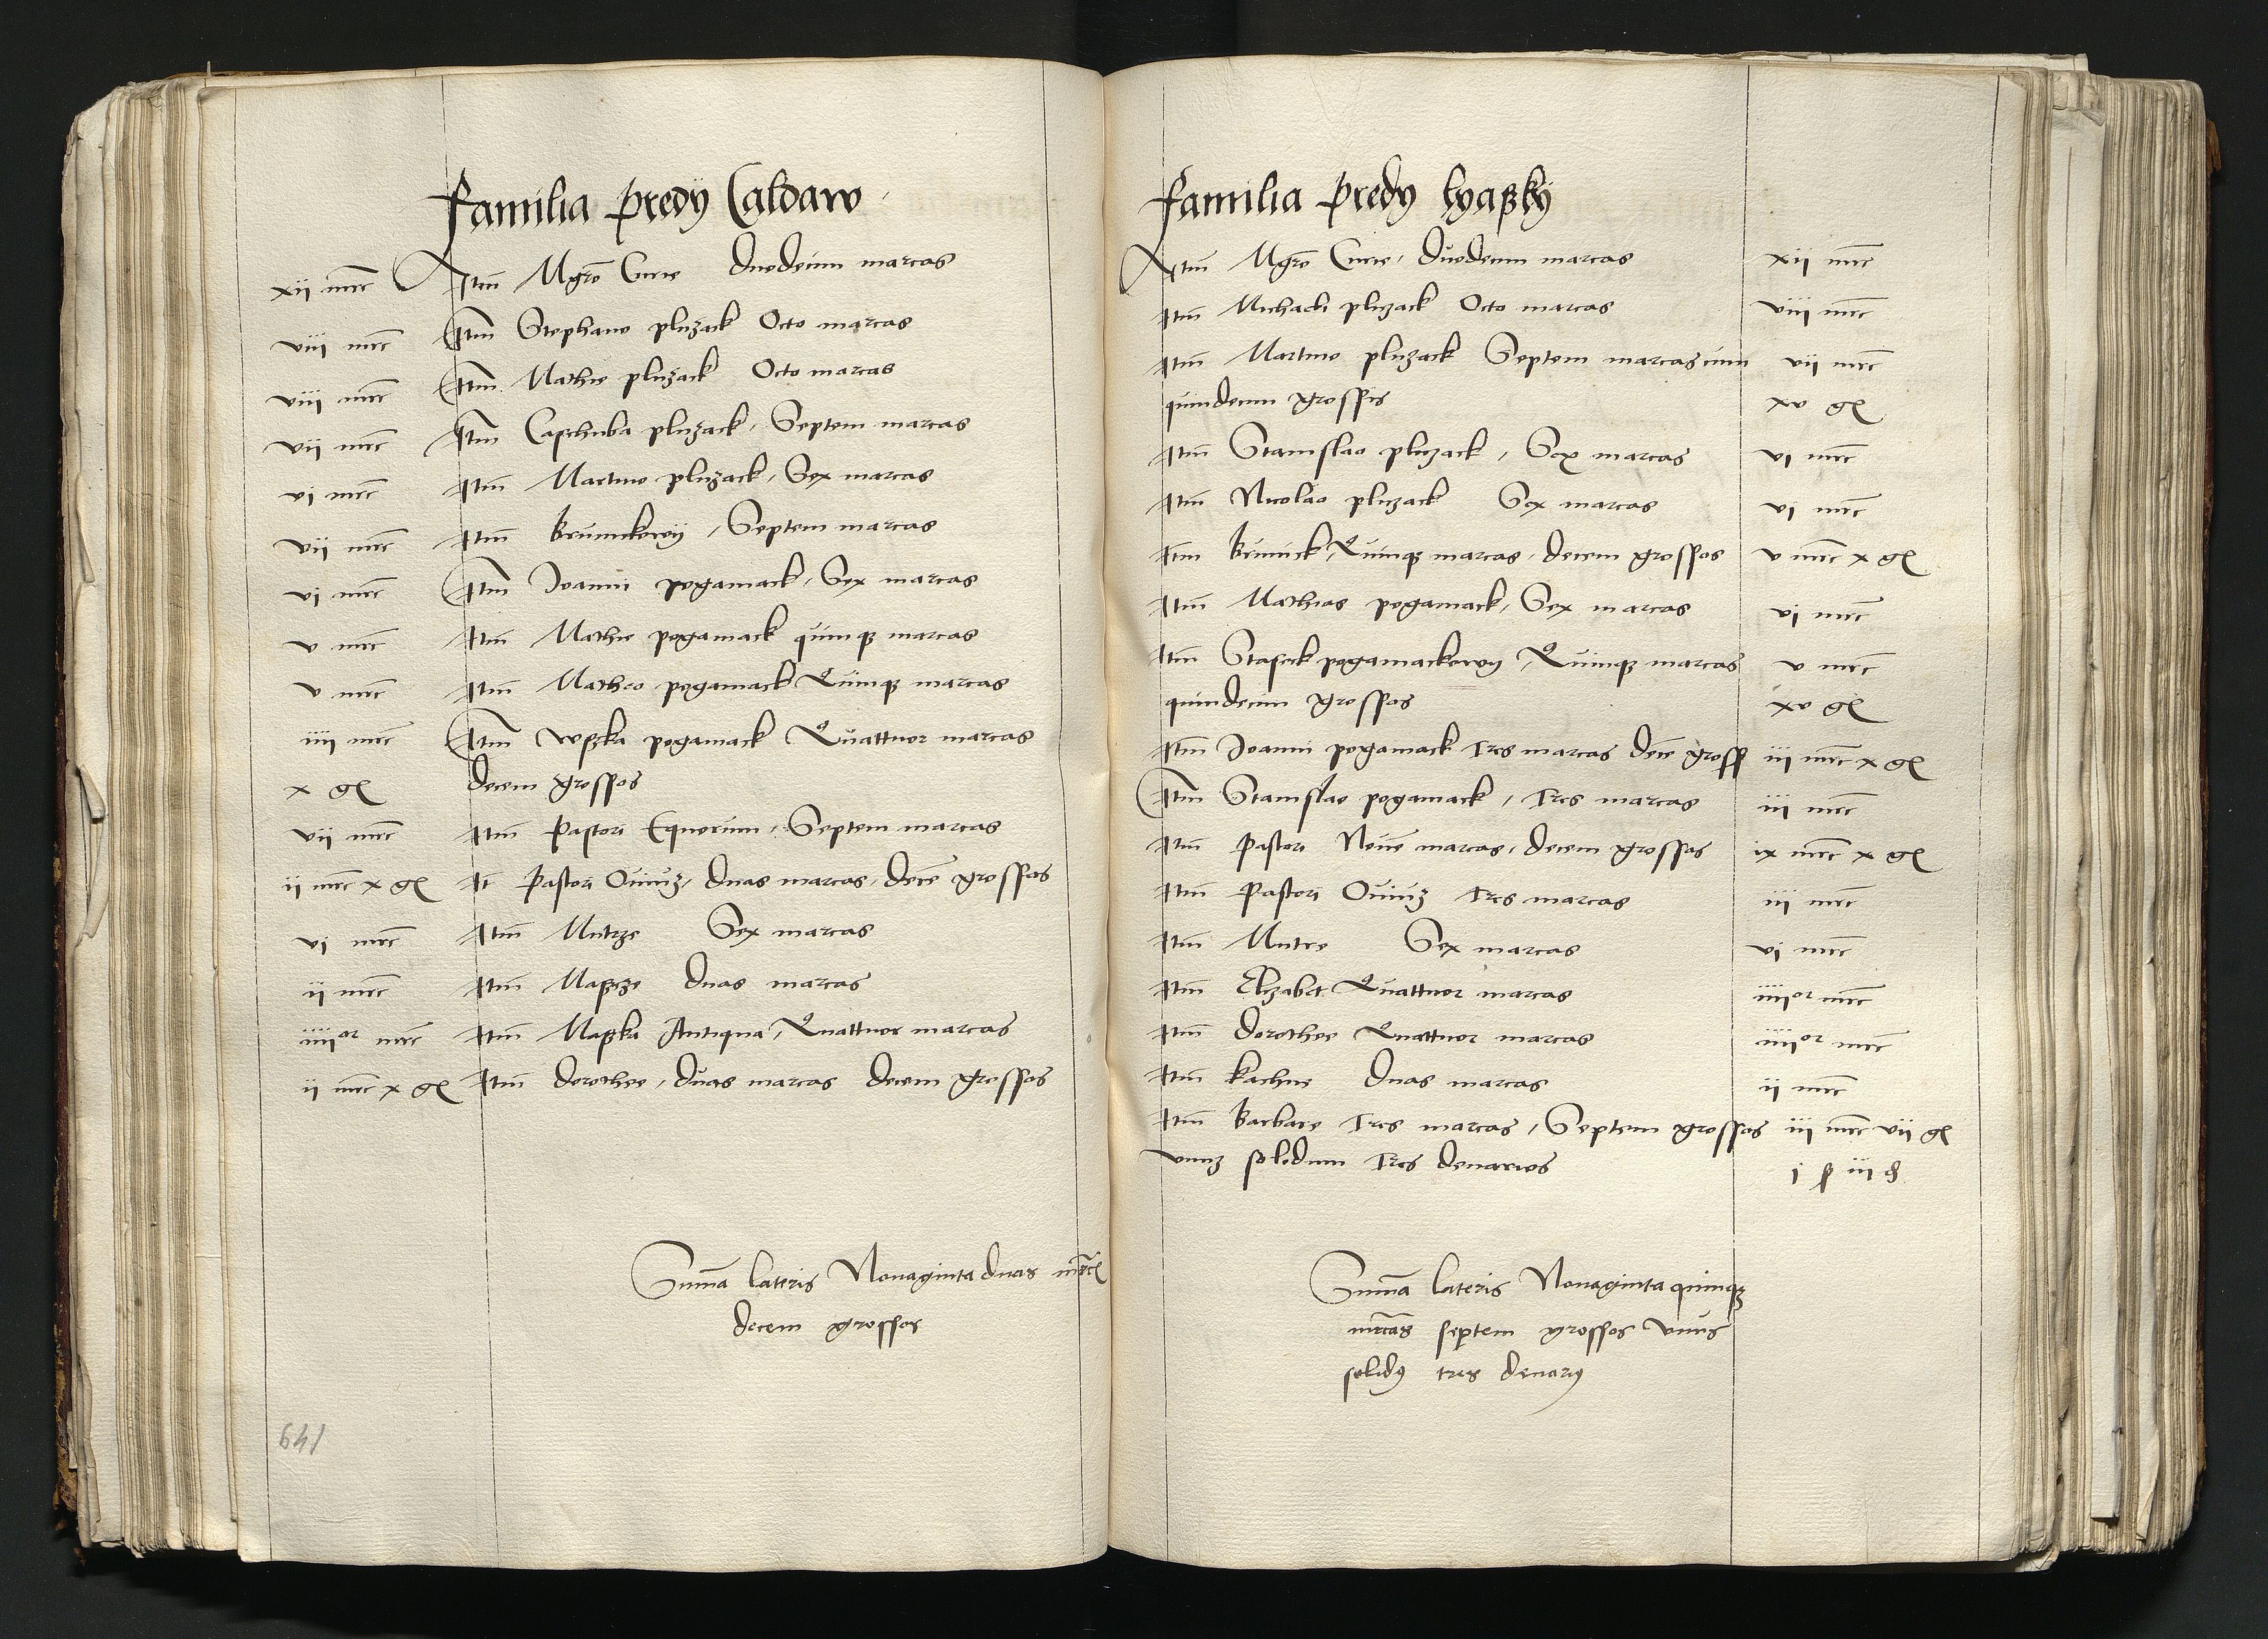 Familia predij Caldaw
xii mrc Itm Mgro Curie Duodecim marcas
viii mrc Itm Stephano pluzack Octo marcas
viii mrc Itm Mathie pluzack Octo marcas
vii mrc Itm Caschuba pluzack, Septem marcas
vi mrc Itm Martino pluzack, Sex marcas
vii mrc Itm Brunnkowij, Septem marcas
vi mrc Itm Joanni pogamack, Sex marcas
v mrc Itm Mathie pogamack quinq marcas
v mrc Itm Matheo pogamack Quinq marcas
iiii mrc Itm pogamack Quattuor marcas
x gl decem grossos
vii mrc Itm Pastori Equorum, Septem marcas
ii mrc x gl It Pastori Ouiuz, duas marcas, dece grossos
vi mrc Itm Mutrze Sex marcas
ii mrc Itm Maßcze duas marcas
iiiior mrc Itm Maßka Antiqua, Quattuor marcas
ii mrc x gl Itm dorothee, duas marcas decem grossos
Suma lateris Nonaginta duas mrc
decem grossos
641
Familia predij lyaßky
Itm Mgro Curie, duodecim marcas xii mrc
Itm Michaeli pluzack Octo marcas viii mrc
Itm Martino pluzack Septem marcas cum vii mrc
quindecim grossis xv gl
Itm Stanislao pluzack, Sex marcas vi mrc
Itm Nicolao pluzack Sex marcas vi mrc
Itm Brunick, Quinq marcas, decem grossos v mrc x gl
Itm Mathias pogamack, Sex marcas vi mrc
Itm Staseck pogamackowy, Quinq marcas v mrc
quindecim grossos xv gl
Itm Joanni pogamack Tres marcas dece gross iii mrc x gl
Itm Stanislao pogamack, Tres marcas iii mrc
Itm Pastori Noue marcas, decem grossos ix mrc x gl
Itm Pastori Ouiuz Tres marcas iii mrc
Itm Mutre Sex marcas vi mrc
Itm Elzabet Quattuor marcas iiiior mrc
Itm dorothee Quattuor marcas iiiior mrc
Itm kachne duas marcas ii mrc
Itm Barbare Tres marcas, Septem grossos iii mrc vii gl
vnuz solidum Tres denarios i ß iii d
Suma lateris Nonaginta quinq
mrcas septem grossos vnus
solidus tres denarij